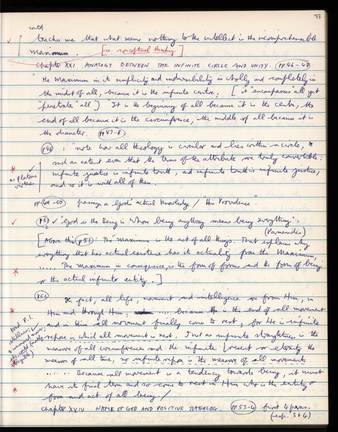 teaches me that what means nothing to the intellect is the incomprehensible
maximum. [ie conceptual thinking]
Chapter XXI ANALOGY BETWEEN THE INFINITE CIRCLE AND UNITY. (pp 46-48)
The Maximum in its simplicity and indivisibility is wholly and completely in
the midst of all, because it is the infinite centre, [it encompasses all yet
"penetrates" all] It is the beginning of all because it is the centre, the
end of all because it is the circumference, the middle of all because it is
the diameter. (p47-8)
: "note how all theology is circular and lies within a circle,
such an extent that the terms of the attributes are truly convertible:
infinite justice is infinite truth, and infinite truth is infinite justice,
and so it is with all of them.
a Platonic
God's actual Knowledge / His Providence
"God is the Being in Whom being anything means being everything".
(Parmenides)
[Again this (p51) The Maximum is the act of all things. That explains why
everything that has actual existence has its actuality from the Maximum
..... The Maximum in consequence is the form of forms and the form of being
or the actual infinite entity.]
In fact, all life, movement and intelligence is from Him, in
Him and through Him, because He is the end of all movement
and in Him all movement finally comes to rest, for He is infinite
repose in which all movement is rest. Just as infinite straightness is the
measure of all circumference and the infinite present or eternity the
measure of all time, so infinite repose is the measure of all movement
..... Because all movement is a tendency towards being, it must
have its final term and so come to rest in Him who is the entity or
form and act of all being /
Chapter XXIV NAME OF GOD AND POSITIVE THEOLOGY. (pp 53-6) first 4 paras.